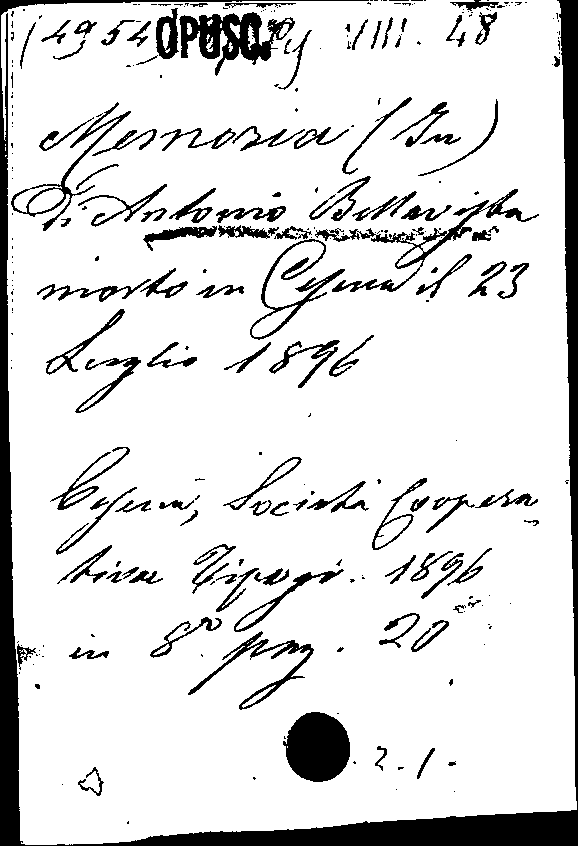 (4954) OPUSC. VIII. 48
Memoria (In)
di Antonio Bellavista
morto in Cesena il 23
Luglio 1896
Cesena, Società Coopera-
tiva Tipogr. 1896
in 8° pag. 20
2.1.